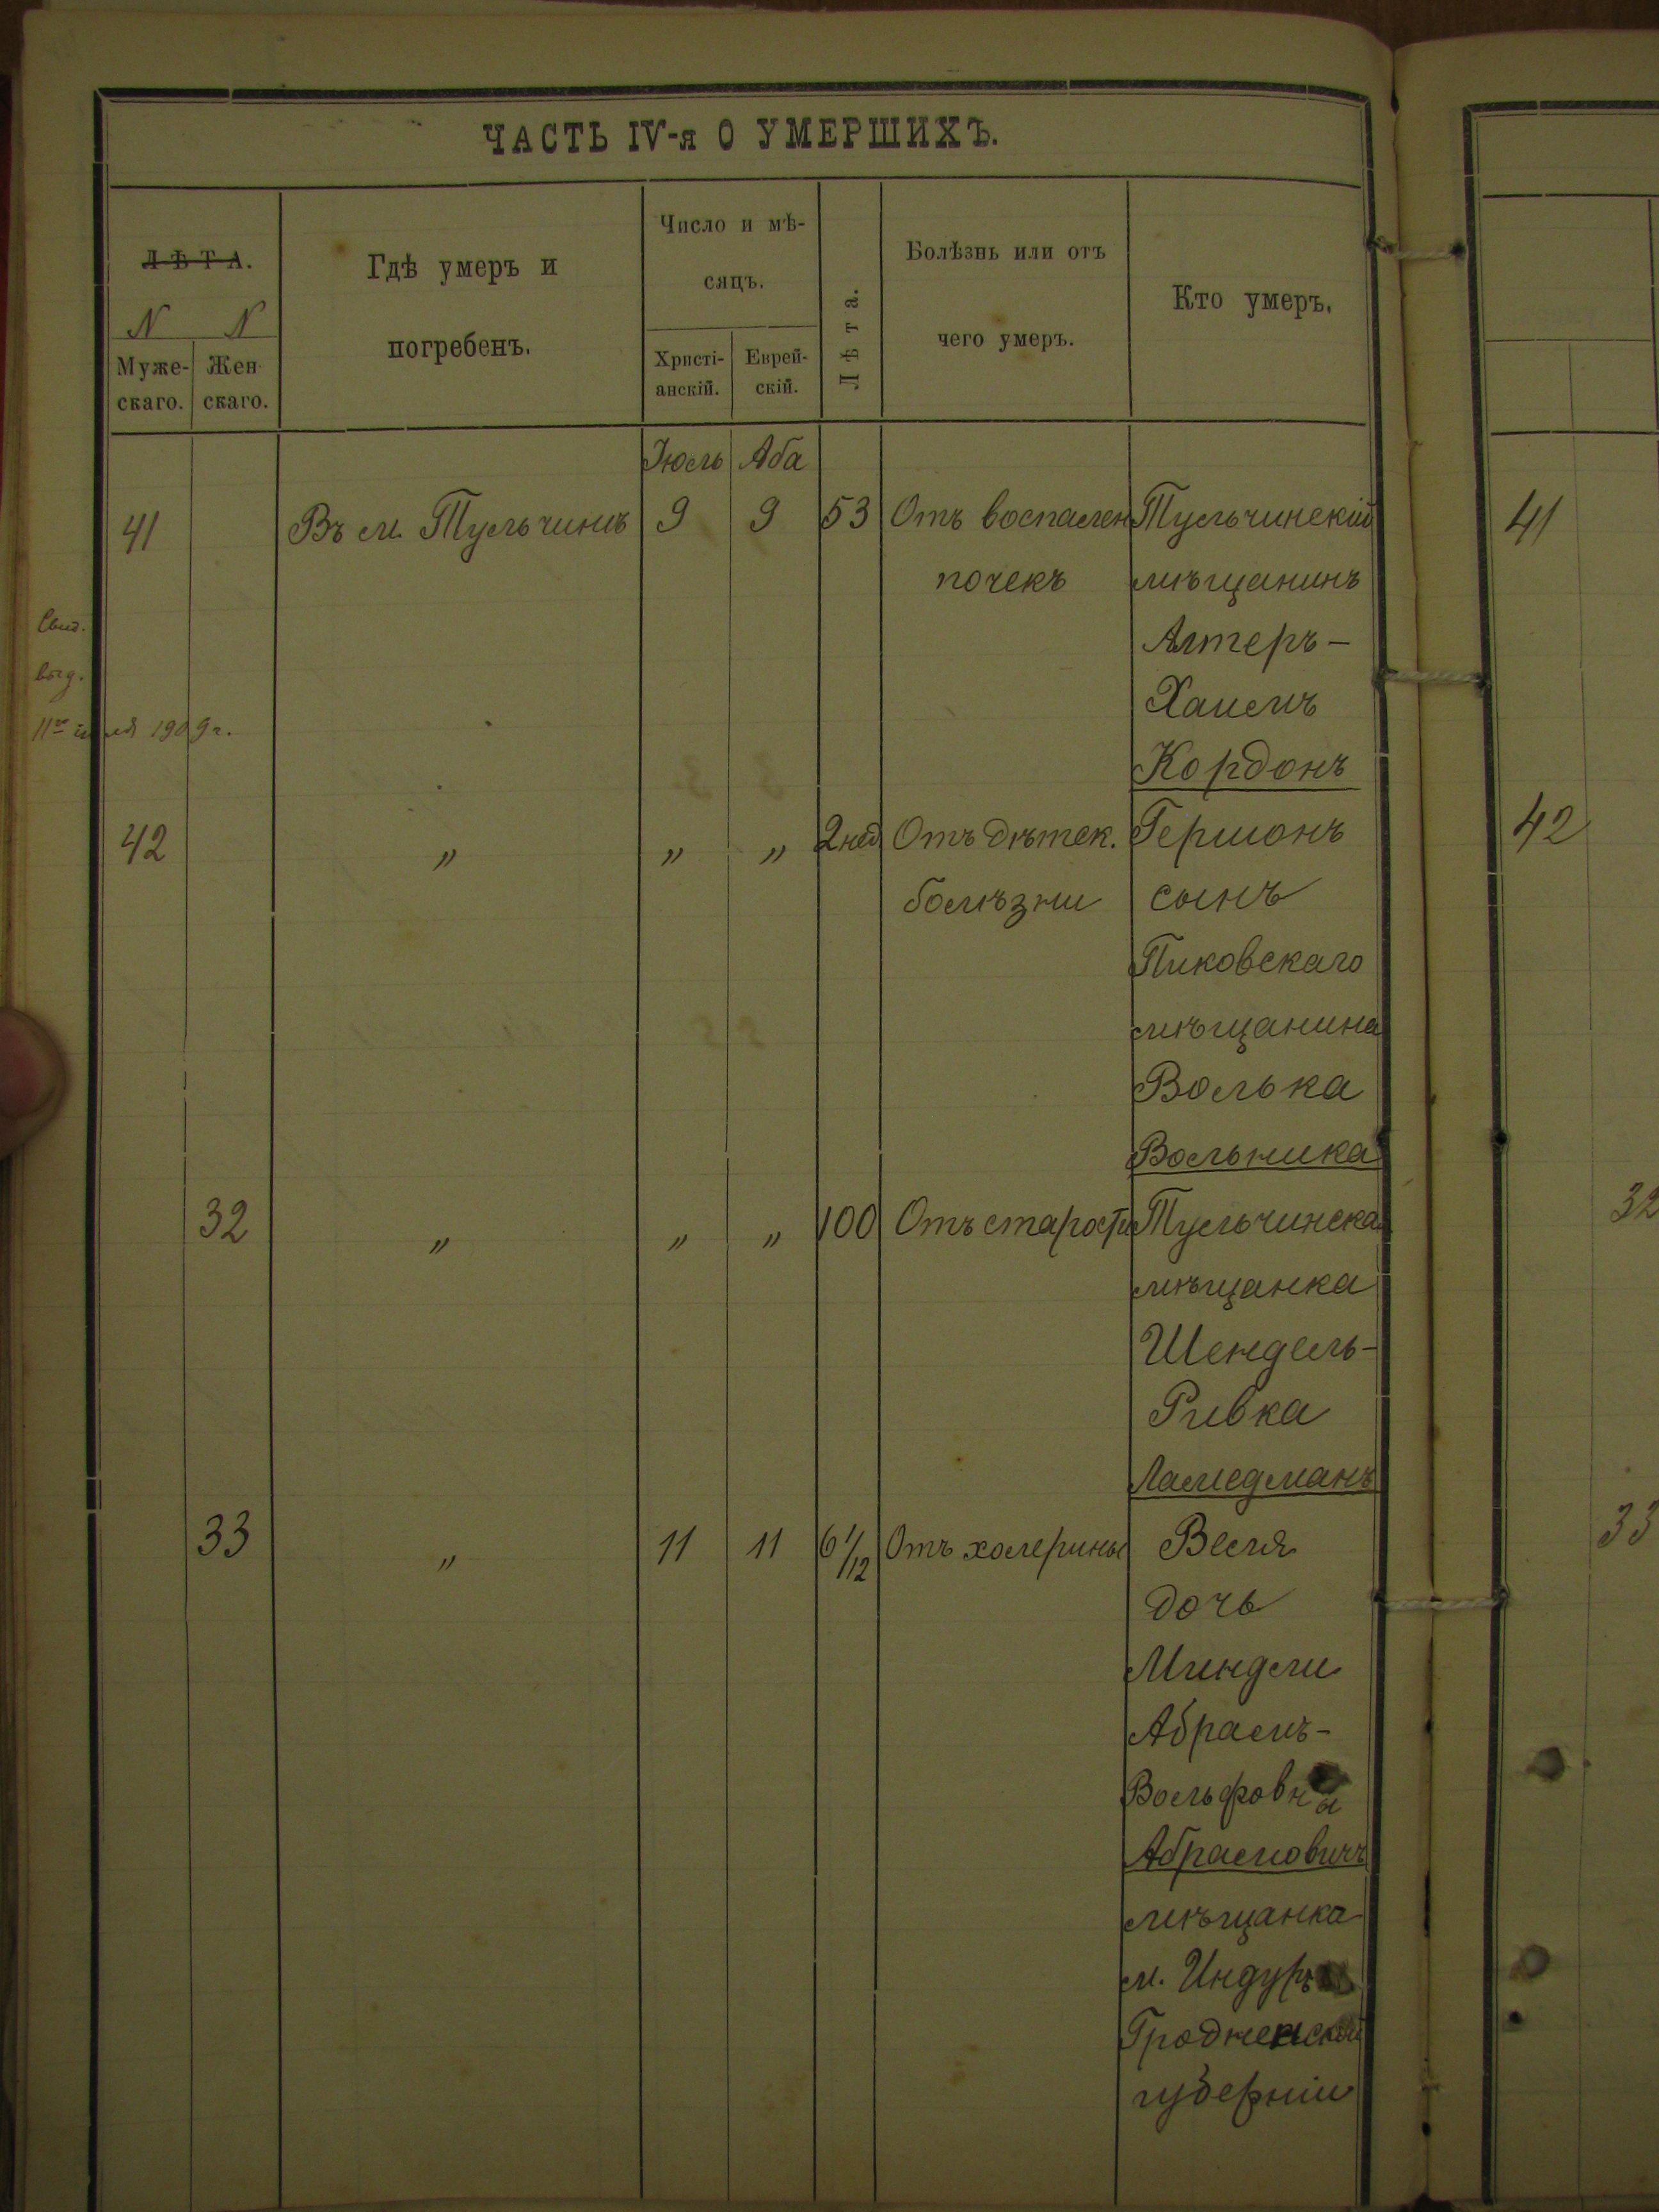 ЧАСТЬ IV-я О УМЕРШИХЪ.
ЛѢТА.
N N
Муже-
скаго.
Жен
скаго.
Гдѣ умеръ и
погребенъ.
Число и мѣ-
сяцъ.
Христі-
анскій.
Еврей-
скій.
Лѣта.
Болѣзнь или отъ
чего умеръ.
Кто умеръ.
Іюль Аба
41 Въ м. Тульчинѣ 9 9 53 Отъ воспален Тульчинскій 41
почекъ мѣщанинъ
Свид. Алтеръ-
выд. Хаимъ
11го іюля 1909г.
Кордонъ
42 " " " 2нед Отъ дѣтск. Гершонъ 42
болѣзни сынъ
Пиковскаго
мѣщанина
Волька
Вольника
32 " " " 100 Отъ старости Тульчинская 32
мѣщанка
Шендель-
Ривка
Ламедманъ
33 " 11 11 6 1/12 Отъ холерины Веля 33
дочь
Миндли
Абрамъ-
Вольфовны
Абрамовичъ
мѣщанка
м. Индуры
Гродненской
губерніи